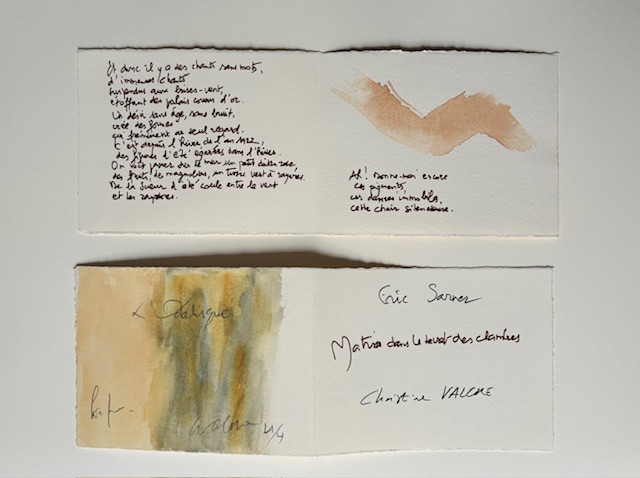 Et donc il y a des chants sans mots,
d'immenses chants
suspendus aux brises-vent,
étoffant des palais cousus d'or.
Un déjà sans âge, sans bruit,
crée des formes
qui frémissent au seul regard.
C'est depuis l'hiver de l'an 1922,
des figures d'été égarées dans l'hiver.
On voit passer sur le mur un petit rose,
des fruits, des magnolias, un tissu vert à rayures.
De la sueur d'été coule entre le vert
et les rayures.
Ah! Donne-moi encore
ces pigments,
ces danses immobiles,
cette chair silencieuse.
L'Odalisque
2/4
Eric Sarner
Matisse dans le des chambres
Christine VALCKE